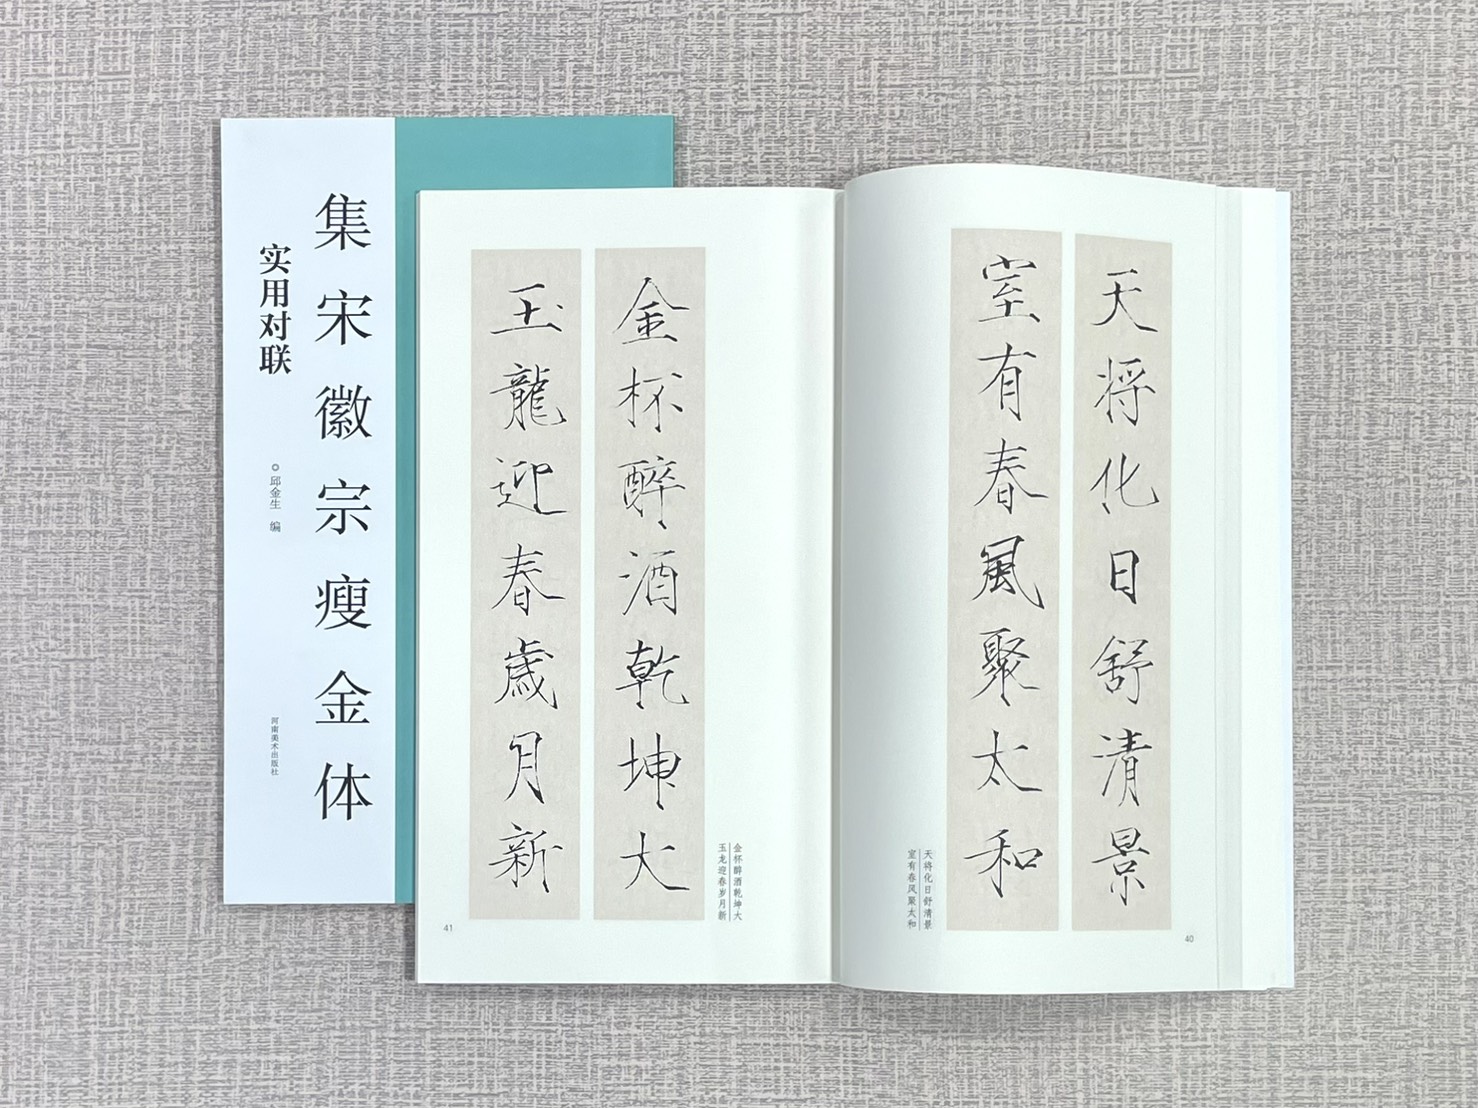 集宋徽宗瘦金体
实用对联
邱金生 编
河南美术出版社
天将化日舒清景
室有春風聚太和
天将化日舒清景
室有春风聚太和
40
金杯醉酒乾坤大
玉龍迎春歳月新
金杯醉酒乾坤大
玉龙迎春岁月新
41